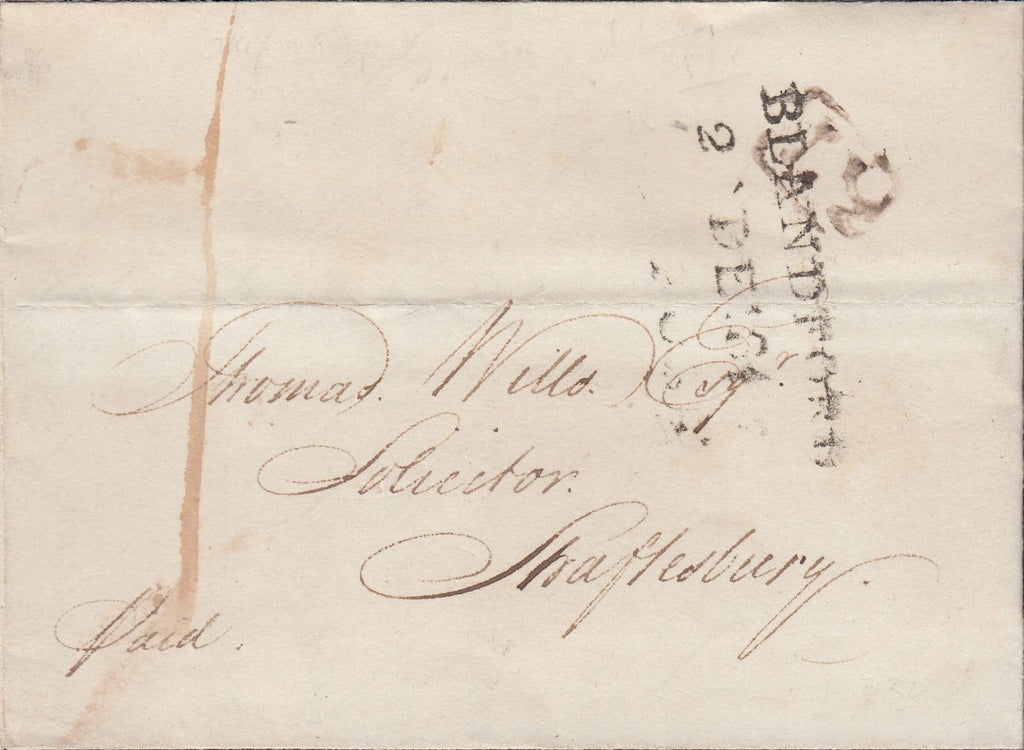 BLANDFORD
2 DE
Thomas Wills Esqr
Solicitor.
Shaftesbury.
Paid.